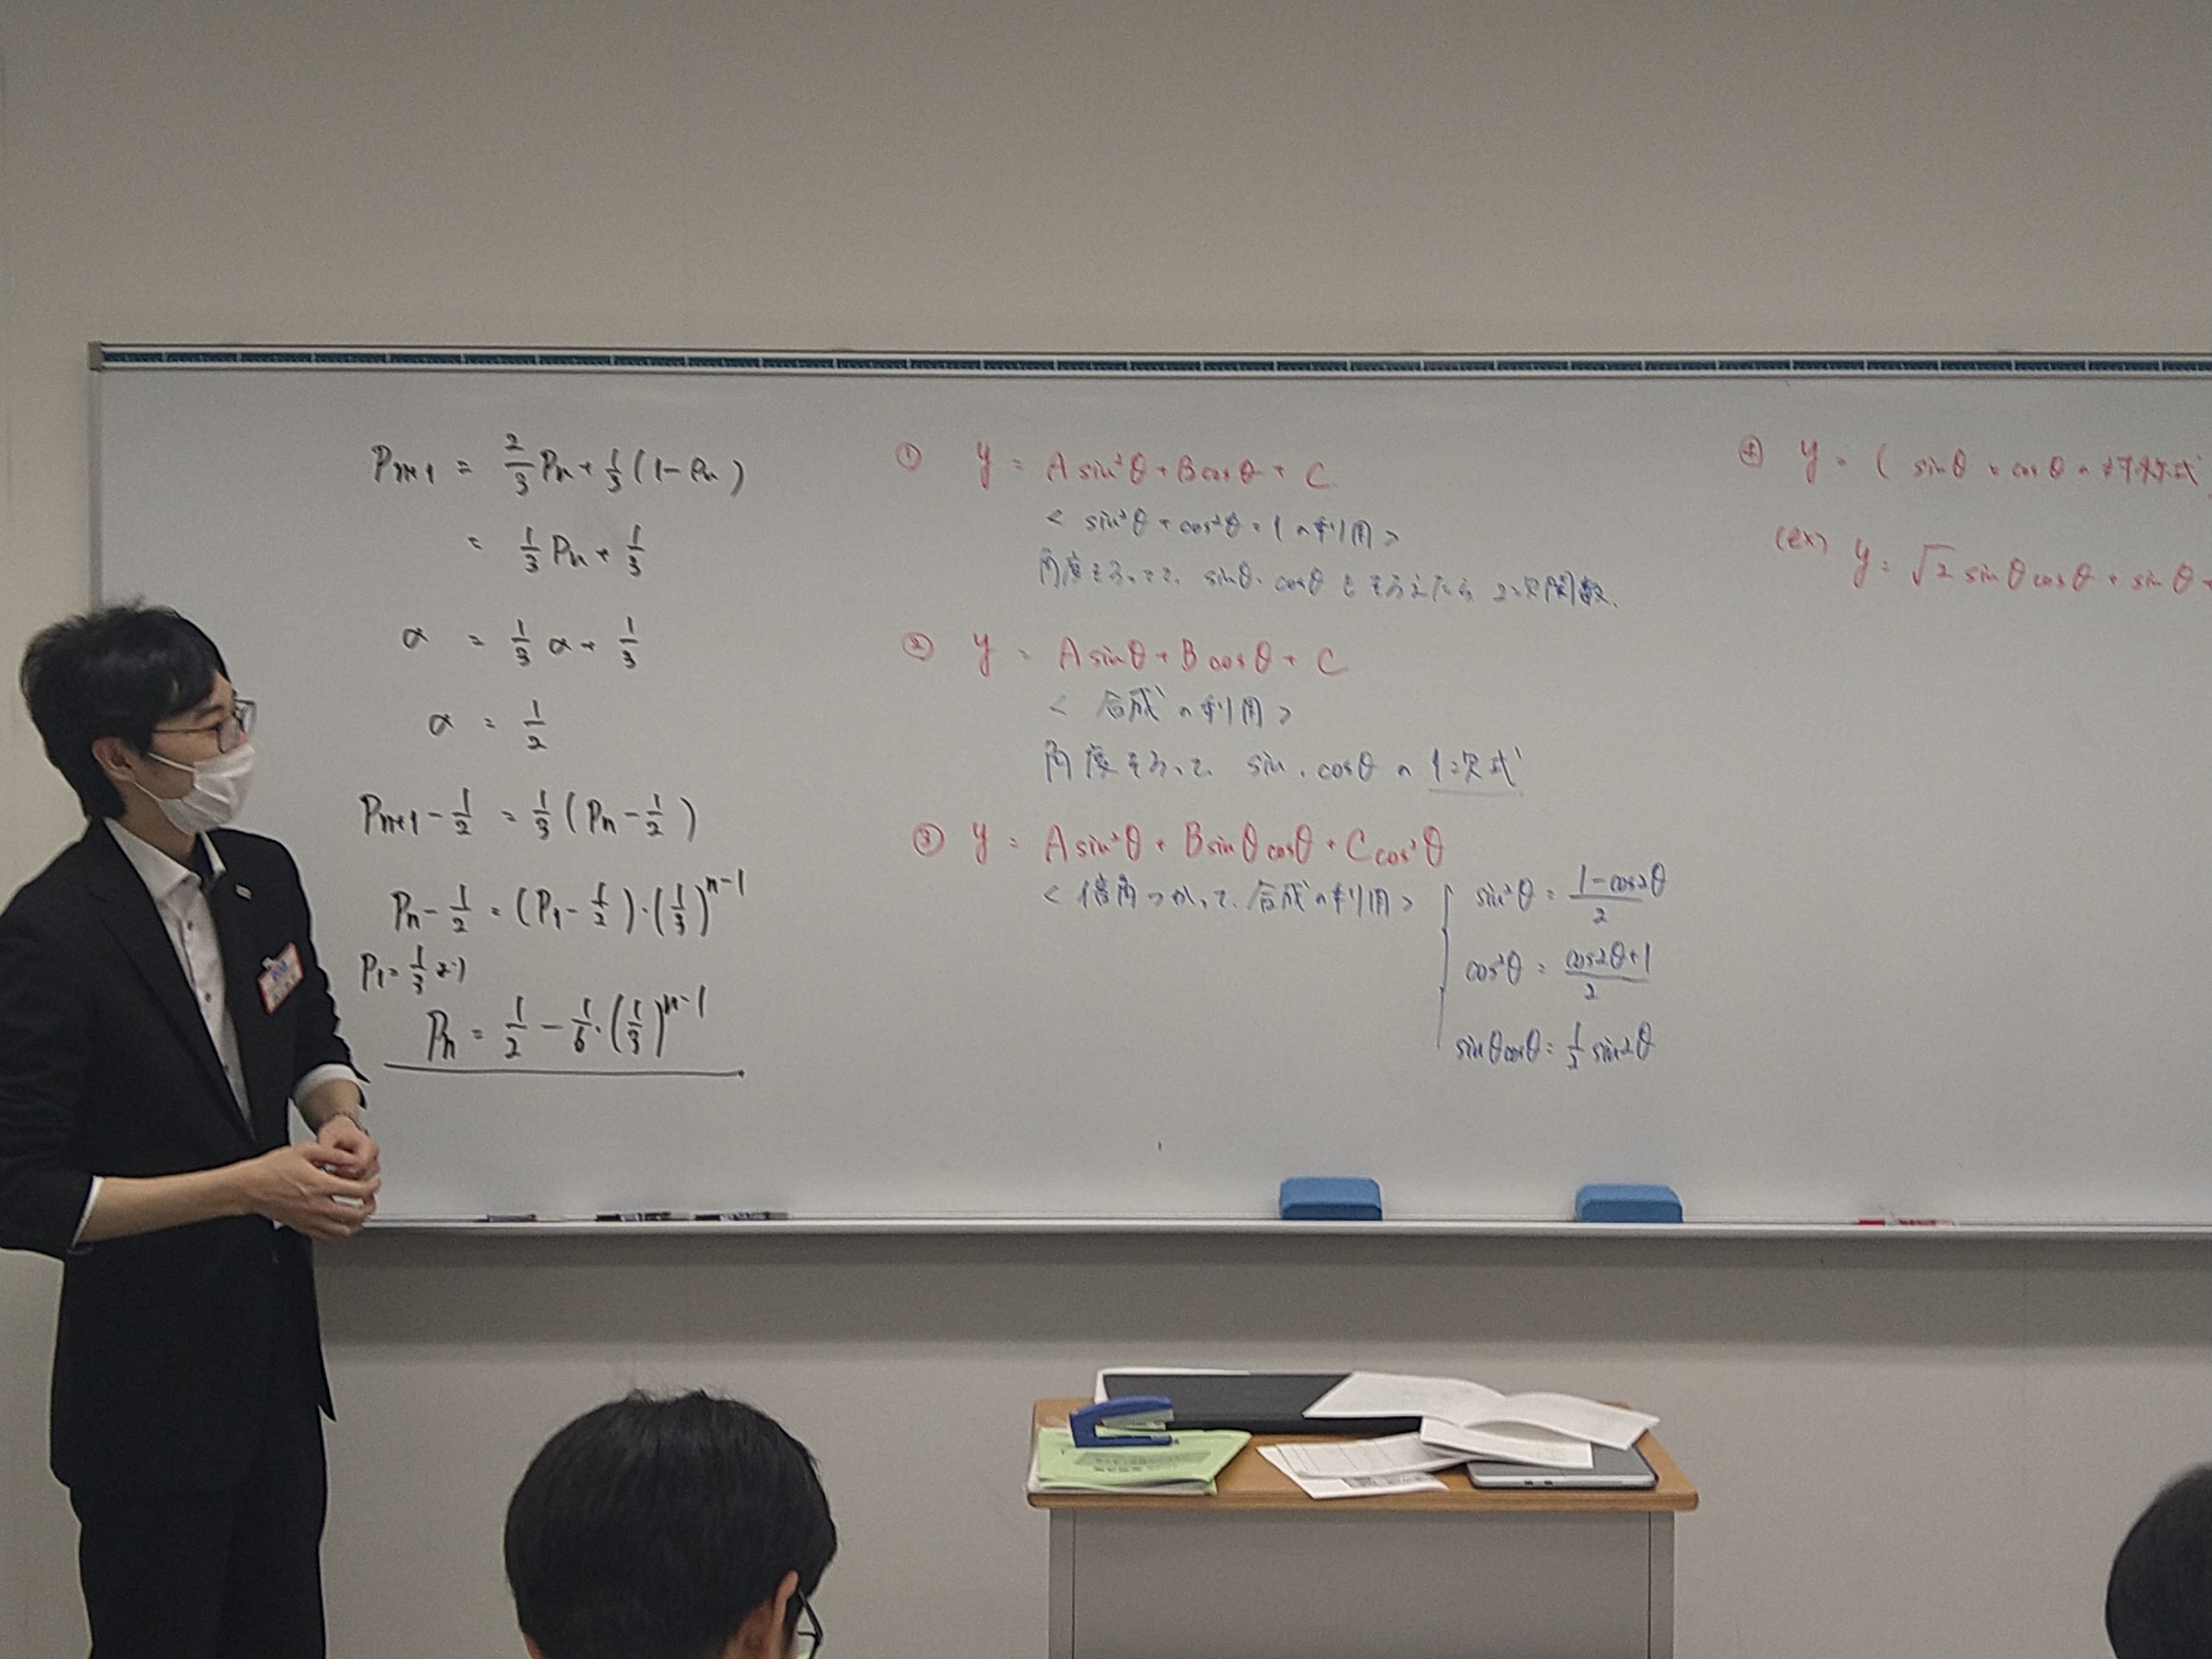 P_{n+1} = \frac{2}{3}P_n + \frac{1}{3}(1-P_n)
= \frac{1}{3}P_n + \frac{1}{3}
α = \frac{1}{3}α + \frac{1}{3}
α = \frac{1}{2}
P_{n+1} - \frac{1}{2} = \frac{1}{3}(P_n - \frac{1}{2})
P_n - \frac{1}{2} = (P_1 - \frac{1}{2})·(\frac{1}{3})^{n-1}
P_1 = \frac{1}{3} より
P_n = \frac{1}{2} - \frac{1}{6}·(\frac{1}{3})^{n-1}
① y = A sin²θ + B cosθ + C
< sin²θ + cos²θ = 1 の利用 >
角度そろってて、sinθ、cosθ もそろえたら 2次関数、
② y = A sinθ + B cosθ + C
< 合成の利用 >
角度そろって sin, cosθ の 1次式
③ y = A sin²θ + B sinθ cosθ + C cos²θ
< 倍角つかって、合成の利用 >
sin²θ = \frac{1-cos2θ}{2}
cos²θ = \frac{cos2θ+1}{2}
sinθcosθ = \frac{1}{2} sin2θ
④ y = ( sinθ と cosθ の対称式
(ex) y = √2 sinθ cosθ + sinθ +